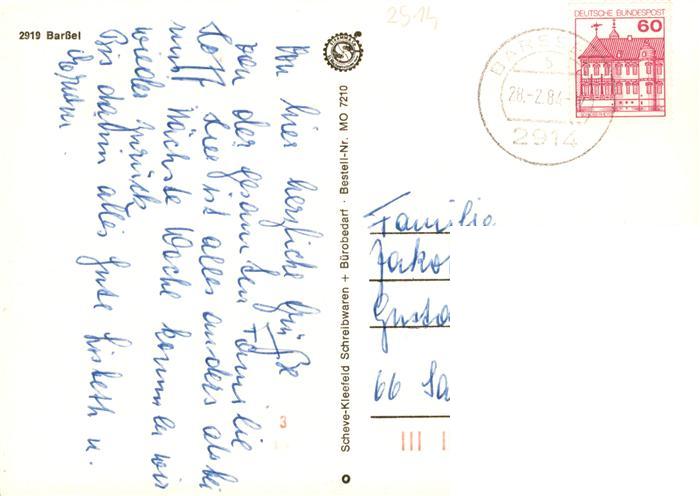 2919 Barßel
Von hier herzliche Grüße
von der gesamten Familie
Hoff hier ist alles anders als bei
uns Nächste Woche kommen wir
wieder zurück
Bis dahin alles Gute Lisbeth u.
Scheve-Kleefeld Schreibwaren + Bürobedarf · Bestell-Nr. MO 7210
2514
DEUTSCHE BUNDESPOST
60
BARSSEL
28.-2.84
2914
Familie
Jako
Gusta
66 Sa
3